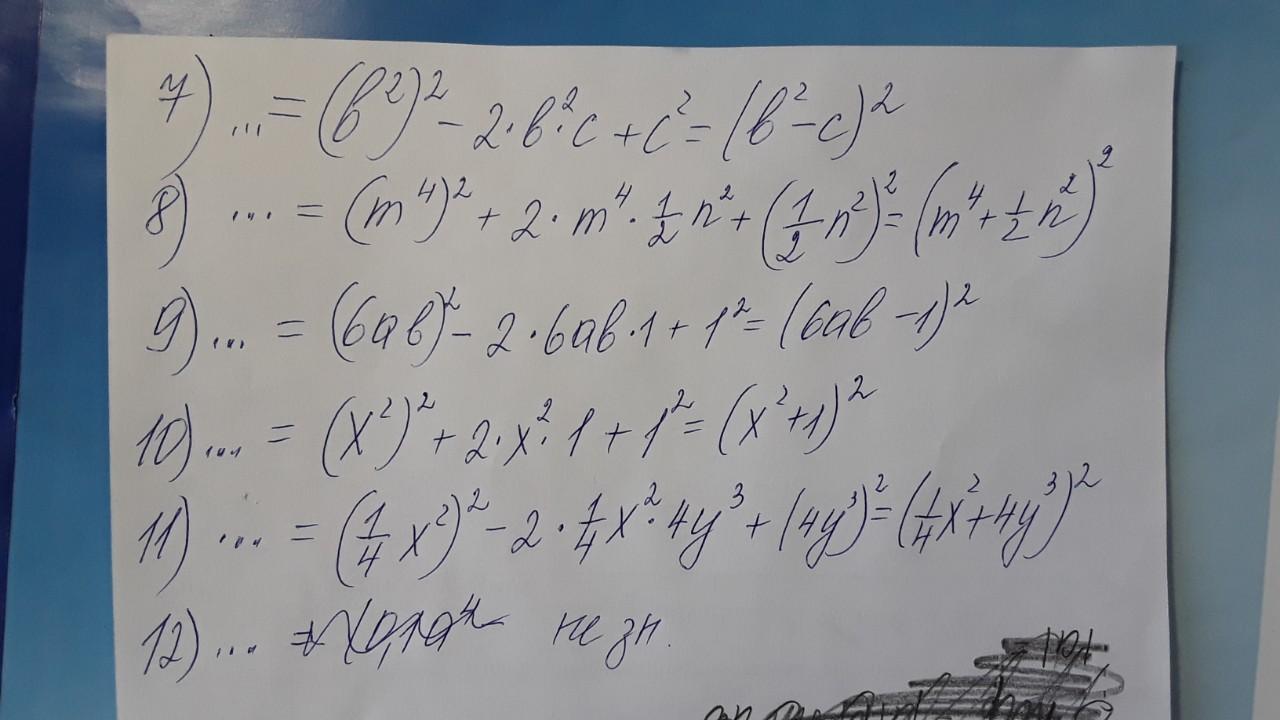 7) ... = (в²)² - 2·в²·c + c² = (в² - c)²
8) ... = (m⁴)² + 2·m⁴·1/2 n² + (1/2 n²)² = (m⁴ + 1/2 n²)²
9) ... = (6ав)² - 2·6ав·1 + 1² = (6ав - 1)²
10) ... = (x²)² + 2·x²·1 + 1² = (x² + 1)²
11) ... = (1/4 x²)² - 2·1/4 x²·4y³ + (4y³)² = (1/4 x² + 4y³)²
12) ... = не зн.